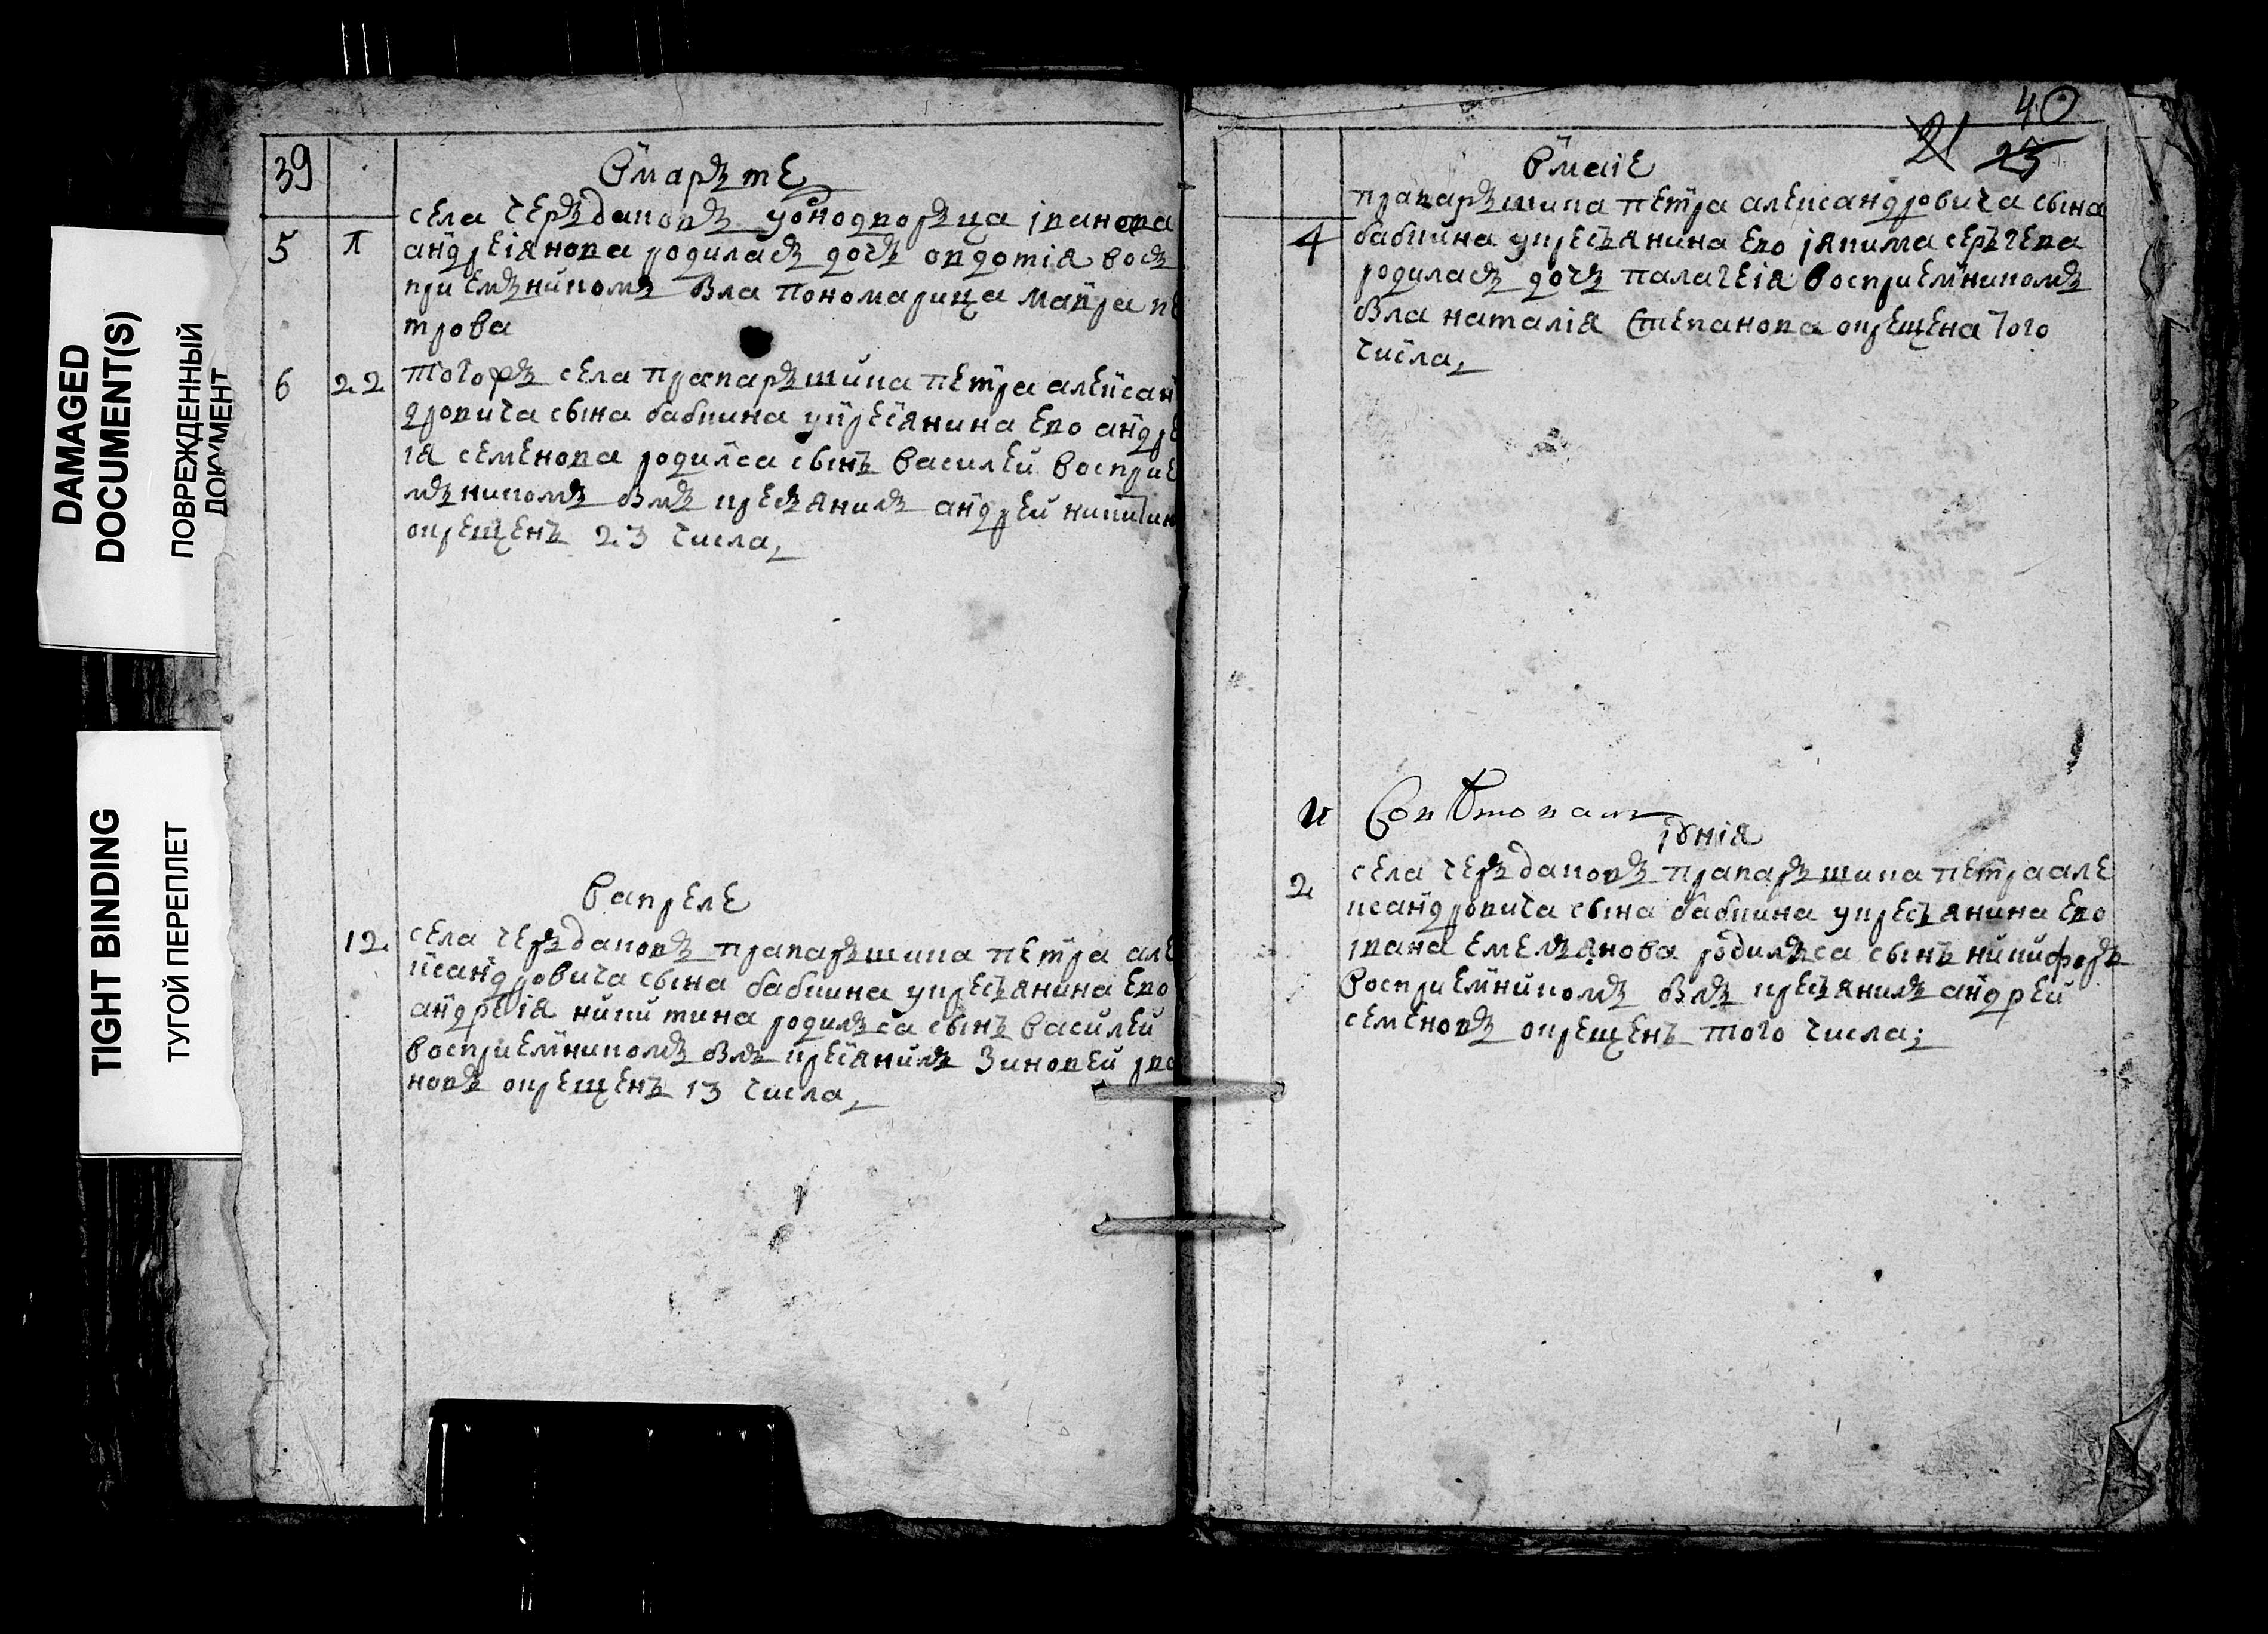 DAMAGED
DOCUMENT(S)
ПОВРЕЖДЕННЫЙ
ДОКУМЕНТ
TIGHT BINDING
ТУГОЙ ПЕРЕПЛЕТ
39
Вмартъте
5
села черъдаковъ уоднодворъца iванова
андреiянова родиласъ дочъ овдотiя восъ
приемъникомъ была пономарица мавра пе
трова
6 22 тогожъ села прапаръшика петра алексан
дровича сына бабкина укрестянина ево андре
iя семенова родился сынъ василей восприе
мъникомъ былъ кресьянинъ андрей никитин
окрещенъ 23 числа,
Вапреле
12 села черъдаковъ прапаръшика петра але
ксандровича сына бабкина укресьянина ево
андреiя никитина родилъса сынъ василей
восприемникомъ былъ крестянинъ зиновей iва
новъ окрещенъ 13 числа,
40
21 23
Вмаiе
прапаръшика петра александровича сына
4 бабкина укресьянина ево iякима серъгева
родиласъ дочъ палагея восприемникомъ
была наталiя степанова окрещена того
числа,
и
iюнiя
2 села черъдаковъ прапаръшика петра але
ксандровича сына бабкина укресьянина ево
iвана емельянова родилъса сынъ никифоръ
восприемникомъ былъ кресьянинъ андрей
семеновъ окрещенъ того числа;